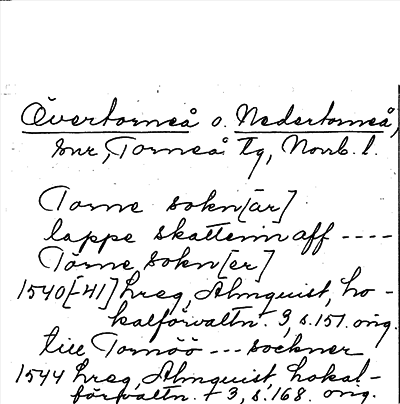 Övertorneå o. Nedertorneå,
snr, Torneå tg, Norrb. l.
Torne sokn[ar]
lappe skattenn aff ----
Torne sokn[er]
1540[-41] hreg, Almquist, Lo-
kalförvaltn. 3, s. 151. orig.
till Tornöö --- sockner
1544 hreg, Almquist, Lokal-
förvaltn. 3, s. 168. orig.